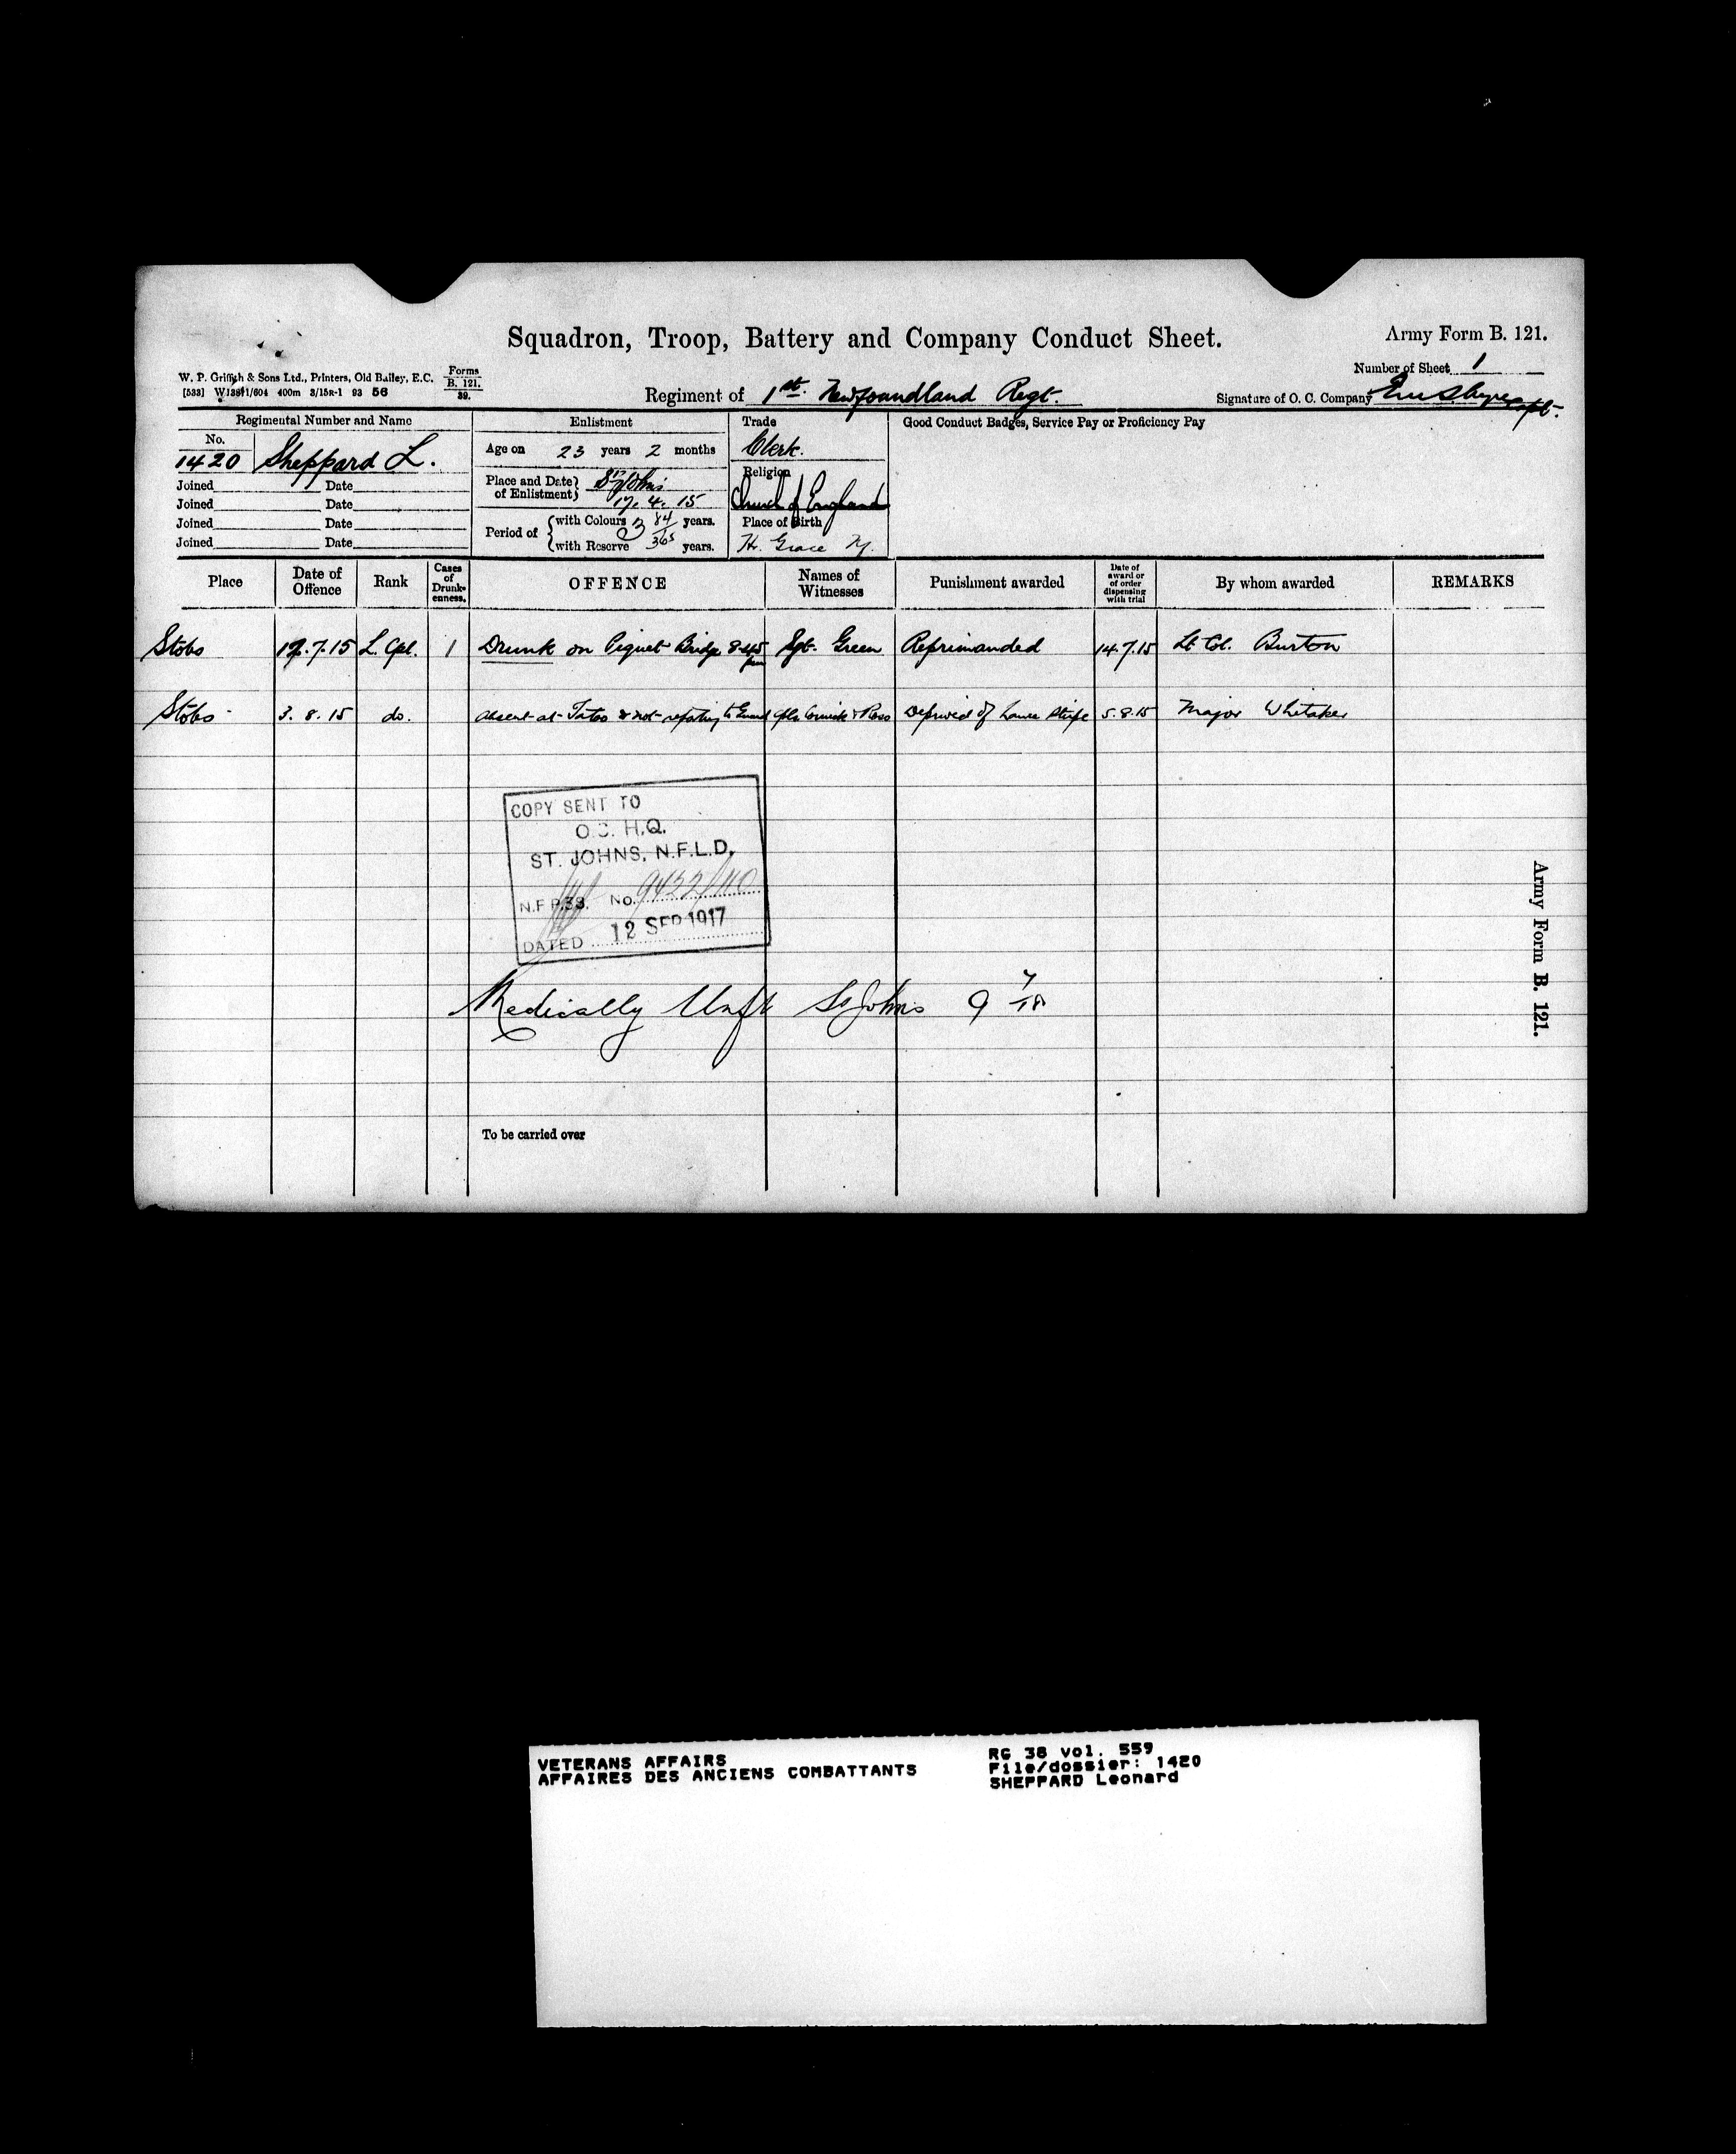 Squadron, Troop, Battery and Company Conduct Sheet.
Army Form B. 121.
W. P. Griffith & Sons Ltd., Printers, Old Bailey, E.C.
[533] W13891/604 400m 3/15R-1 93 56
Forms
B. 121.
39.
Number of Sheet 1
Regiment of 1st. Newfoundland Regt.
Signature of O. C. Company Capt.
Regimental Number and Name
No.
1420 Sheppard L.
Joined Date
Joined Date
Joined Date
Joined Date
Enlistment
Age on 23 years 2 months
Place and Date of Enlistment St Johns
17. 4. 15
Period of with Colours 84/365 years.
with Reserve years.
Trade
Clerk.
Religion
Church of England
Place of Birth
Hr. Grace
Good Conduct Badges, Service Pay or Proficiency Pay
Place Date of Offence Rank Cases of Drunkenness. OFFENCE Names of Witnesses Punishment awarded Date of award or of order dispensing with trial By whom awarded REMARKS
Stobs .7.15 L. Cpl. 1 Drunk on Piquet Bridge 8.45 pm Sgt. Green Reprimanded 14.7.15 Lt Col. Burton
Stobs 3. 8. 15 do. Absent at Tatoo & not reporting to Guard & Ross Deprived of Lance Stripe 5.8.15 Major Whitaker
COPY SENT TO
O.C. H.Q.
ST. JOHNS, N.F.L.D.
N.F.P.38. No. 9422/110
DATED 12 SEP 1917
Medically Unfit St Johns 9 7/18
To be carried over
Army Form B. 121.
VETERANS AFFAIRS
AFFAIRES DES ANCIENS COMBATTANTS
RG 38 Vol. 559
File/dossier: 1420
SHEPPARD Leonard